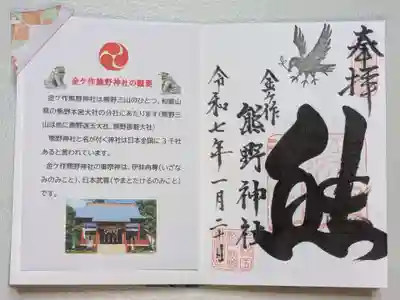 金ケ作熊野神社の概要
金ケ作熊野神社は熊野三山のひとつ、和歌山
県の熊野本宮大社の分社にあたります(熊野三
山は他に熊野速玉大社、熊野那智大社)
熊野神社と名が付く神社は日本全国に3千社
あると言われています。
金ケ作熊野神社の御祭神は、伊弉冉尊(いざな
みのみこと)、日本武尊(やまとたけるのみこと)
です。
奉拝
熊
金ケ作
熊野神社
令和七年一月二十日